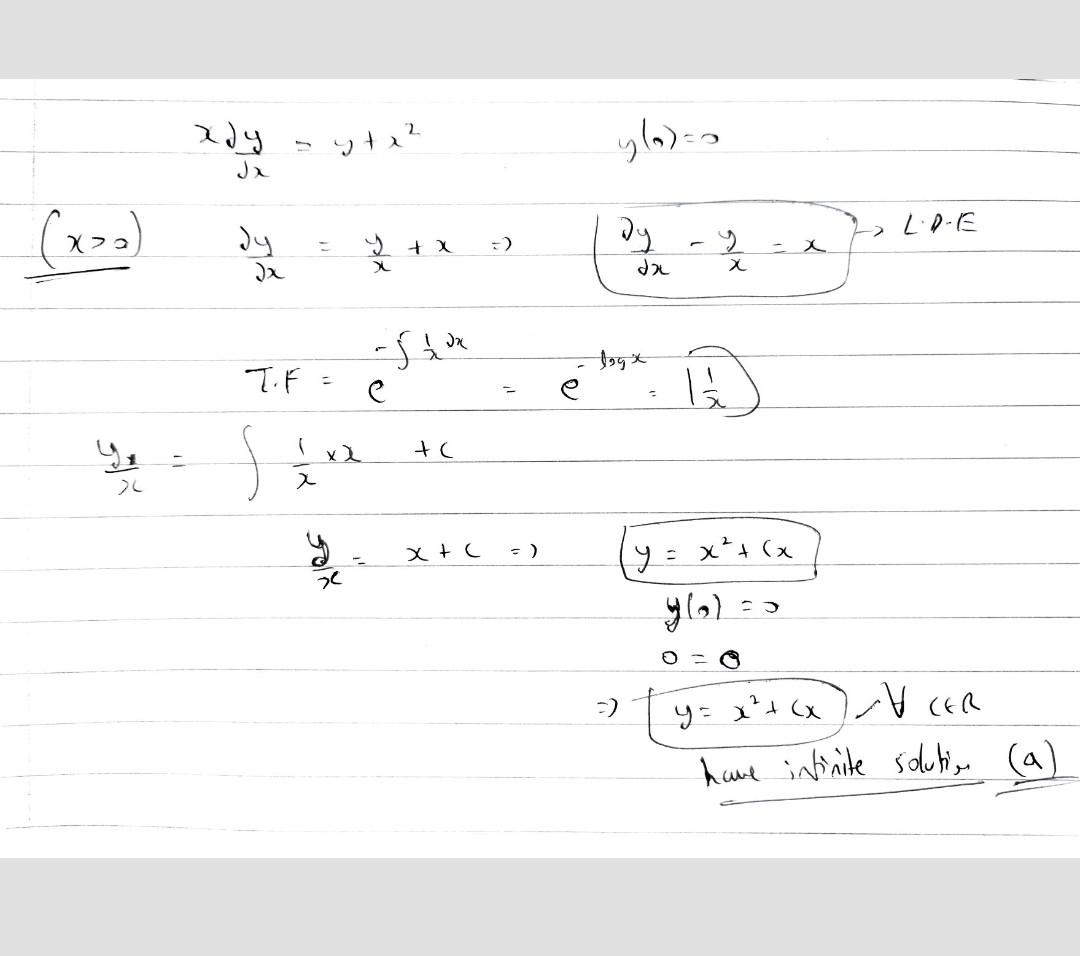 x dy/dx = y + x² y(0)=0
(x>0) dy/dx = y/x + x => dy/dx - y/x = x → L.D.E
I.F = e^(-∫ 1/x dx) = e^(-log x) = 1/x
y/x = ∫ 1/x × x + C
y/x = x + C => y = x² + Cx
y(0) = 0
0 = 0
=> y = x² + Cx ∀ C∈R
have infinite solution (a)